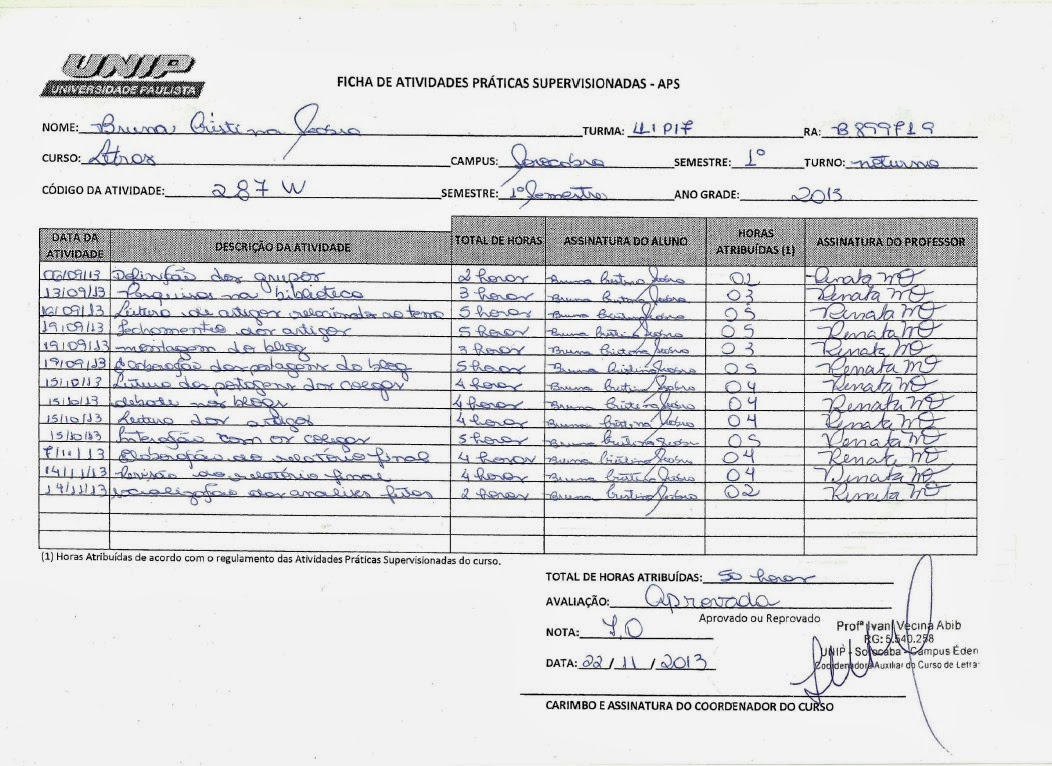 UNIP
UNIVERSIDADE PAULISTA
FICHA DE ATIVIDADES PRÁTICAS SUPERVISIONADAS - APS
NOME: Bruna Cristina TURMA: RA: B899719
CURSO: Letras CAMPUS: Sorocaba SEMESTRE: 1º TURNO: noturno
CÓDIGO DA ATIVIDADE: 287 W SEMESTRE: 1º Semestre ANO GRADE: 2013
DATA DA ATIVIDADE DESCRIÇÃO DA ATIVIDADE TOTAL DE HORAS ASSINATURA DO ALUNO HORAS ATRIBUÍDAS (1) ASSINATURA DO PROFESSOR
06/09/13 Definição dos grupos 2 horas Bruna Cristina 02 Renata
13/09/13 Pesquisas na biblioteca 3 horas Bruna Cristina 03 Renata
16/09/13 Leitura de artigos relacionados ao tema 5 horas Bruna Cristina 05 Renata
19/09/13 fechamentos dos artigos 5 horas Bruna Cristina 05 Renata
19/09/13 montagem do blog 3 horas Bruna Cristina 03 Renata
19/09/13 Elaboração das postagens do blog 5 horas Bruna Cristina 05 Renata
15/10/13 Leitura das postagens dos colegas 4 horas Bruna Cristina 04 Renata
15/10/13 debate nos blogs 4 horas Bruna Cristina 04 Renata
15/10/13 Leitura dos artigos 4 horas Bruna Cristina 04 Renata
15/10/13 Interação com os colegas 5 horas Bruna Cristina 05 Renata
Elaboração do relatório final 4 horas Bruna Cristina 04 Renata
14/11/13 Revisão do relatório final 4 horas Bruna Cristina 04 Renata
19/11/13 dos analises feitas 2 horas Bruna Cristina 02 Renata
(1) Horas Atribuídas de acordo com o regulamento das Atividades Práticas Supervisionadas do curso.
TOTAL DE HORAS ATRIBUÍDAS: 50 horas
AVALIAÇÃO: Aprovada
Aprovado ou Reprovado
NOTA:
DATA: 22/11/2013
Profª Ivani Vecina Abib
RG: 5.540.258
UNIP - Sorocaba - Campus Éden
Coordenadora Auxiliar do Curso de Letras
CARIMBO E ASSINATURA DO COORDENADOR DO CURSO